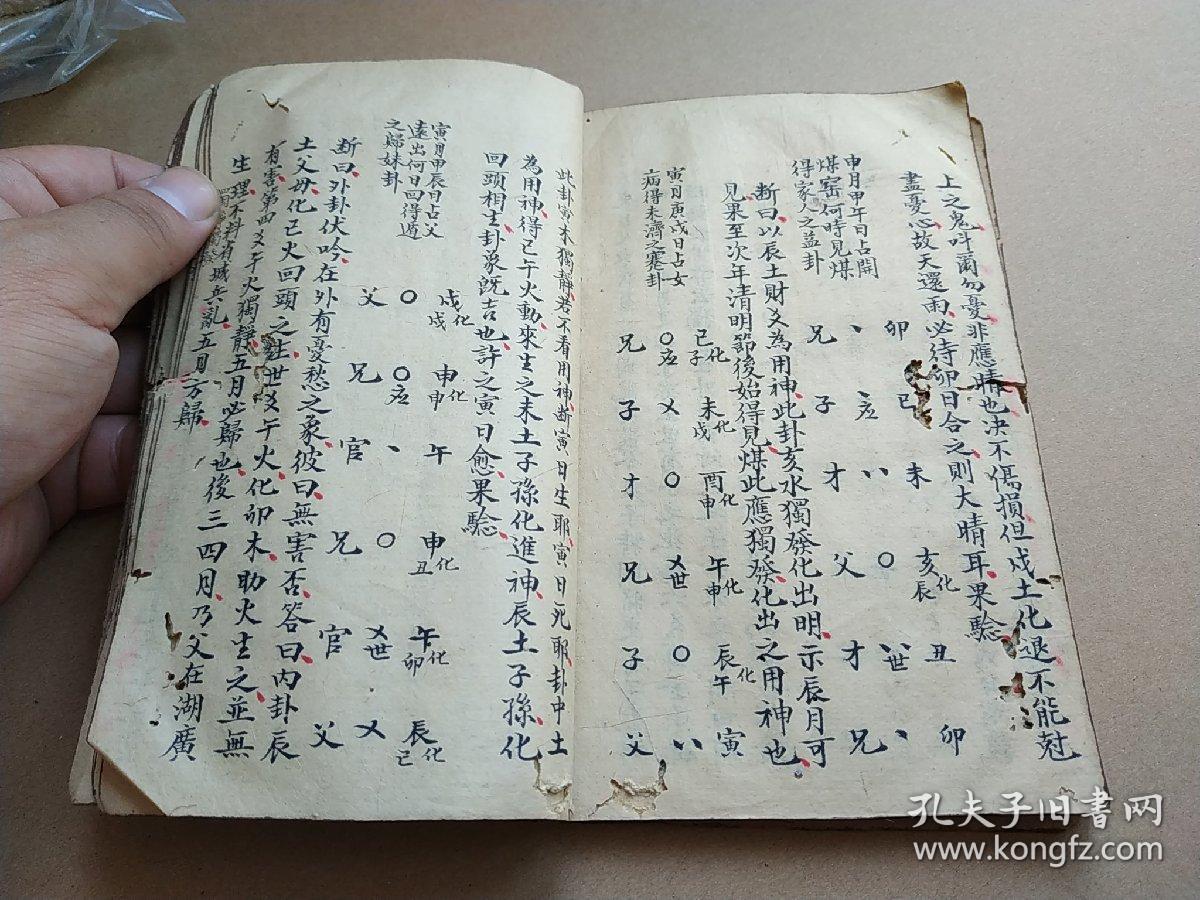 上之鬼吁爾勿憂非應晴也决不傷損但戍土化退不能尅
盡憂心故天還雨必待卯日合之則大晴耳果騐
申月甲午日占開
煤窑何時見煤
得家人之益卦
卯 巳 未 亥化辰 丑 卯
丶 丶应 〃 〇 〃世 丶
兄 子 才 父 才 兄
断曰以辰土財爻為用神此卦亥水獨發化出明示辰月可
見果至次年清明節後始得見煤此應獨發化出之用神也
寅月庚戍日占女
病得未濟之蹇卦
巳化子 未化戍 酉化申 午化申 辰化午 寅
〇应 乂 〇 乂世 〇 〃
兄 子 才 兄 子 父
此卦寅木獨静若不看用神断寅日生耶寅日死耶卦中土
為用神得巳午火動來生之未土子孫化進神辰土子孫化
回頭相生卦象既吉也許之寅日愈果騐
寅月甲辰日占父
遠出何日回得遁
之歸妹卦
戍化戍 申化申 午 申化丑 午化卯 辰化巳
〇 〇应 丶 〇 乂世 乂
父 兄 官 兄 官 父
断曰外卦伏吟在外有憂愁之象彼曰無害否答曰内卦辰
土父毋化巳火回頭之生世爻午火化卯木助火生之並無
有害第四爻午火獨静五月必歸也後三四月乃父在湖廣
生理不料有城兵亂五月方歸
孔夫子旧書网
www.kongfz.com